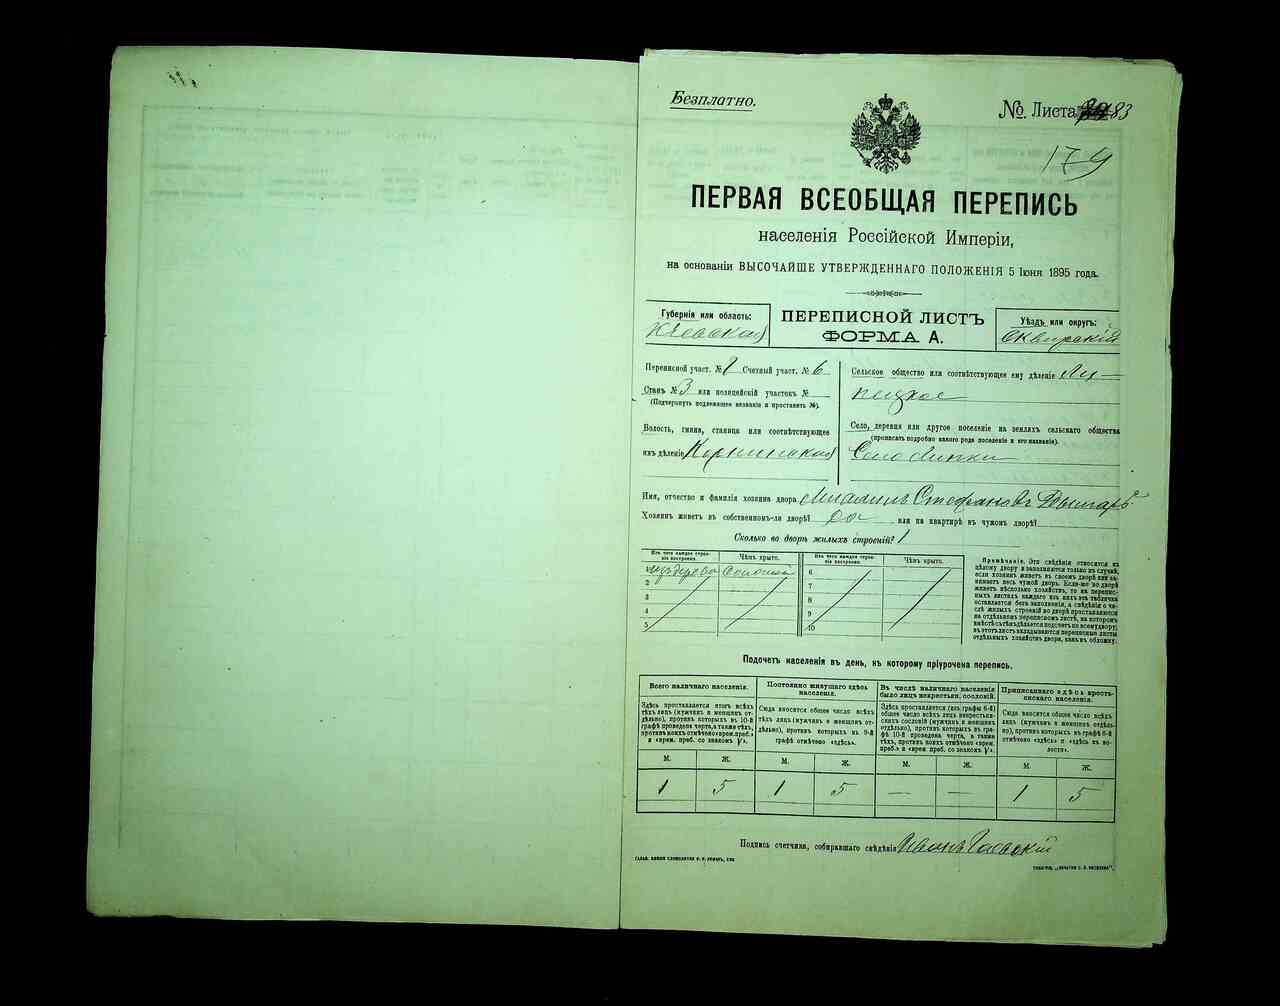 Безплатно.
№ Листа 83
179
ПЕРВАЯ ВСЕОБЩАЯ ПЕРЕПИСЬ
населенія Россійской Имперіи,
на основаніи ВЫСОЧАЙШЕ УТВЕРЖДЕННАГО ПОЛОЖЕНІЯ 5 Іюня 1895 года.
Губернія или область:
Кіевская
ПЕРЕПИСНОЙ ЛИСТЪ
ФОРМА А.
Уѣздъ или округъ:
Сквирскій
Переписной участ. № Счетный участ. № 6
Станъ № 3 или полицейскій участокъ №
(Подчеркнуть подлежащее названіе и проставить №).
Волость, гмина, станица или соотвѣтствующее
имъ дѣленіе Корнинская
Сельское общество или соотвѣтствующее ему дѣленіе Ли-
пецкое
Село, деревня или другое поселеніе на земляхъ сельскаго общества
(прописать подробно какого рода поселеніе и его названіе).
Село Липки
Имя, отчество и фамилія хозяина двора Стефановъ
Хозяинъ живетъ въ собственномъ-ли дворѣ? да или на квартирѣ въ чужомъ дворѣ?
Сколько во дворѣ жилыхъ строеній? 1
Изъ чего каждое строе-
ніе построено.
Чѣмъ крыто.
Изъ чего каждое строе-
ніе построено.
Чѣмъ крыто.
изъ дерева соломой
2
3
4
5
6
7
8
9
10
Примѣчаніе. Эти свѣдѣнія относятся къ
цѣлому двору и заполняются только въ случаѣ,
если хозяинъ живетъ въ своемъ дворѣ или за-
нимаетъ весь чужой дворъ. Если-же во дворѣ
живетъ нѣсколько хозяйствъ, то на перепис-
ныхъ листахъ каждаго изъ нихъ эта табличка
оставляется безъ заполненія, а свѣдѣнія о чи-
слѣ жилыхъ строеній во дворѣ проставляются
на отдѣльномъ переписномъ листѣ, на которомъ
вмѣстѣ съ тѣмъ дѣлается подсчетъ по всему двору;
въ этотъ листъ вкладываются переписные листы
отдѣльныхъ хозяйствъ двора, какъ въ обложку.
Подсчетъ населенія въ день, къ которому пріурочена перепись.
Всего наличнаго населенія.
Здѣсь проставляется итогъ всѣхъ
тѣхъ лицъ (мужчинъ и женщинъ от-
дѣльно), противъ которыхъ въ 10-й
графѣ проведена черта, а также тѣхъ,
противъ коихъ отмѣчено «врем. преб.»
и «врем. преб. со знакомъ V».
Постоянно живущаго здѣсь
населенія.
Сюда вносится общее число всѣхъ
тѣхъ лицъ (мужчинъ и женщинъ от-
дѣльно), противъ которыхъ въ 9-й
графѣ отмѣчено «здѣсь».
Въ числѣ наличнаго населенія
было лицъ некрестьян. сословій.
Здѣсь проставляется (изъ графы 6-й)
общее число всѣхъ лицъ некрестьян-
скихъ сословій (мужчинъ и женщинъ
отдѣльно), противъ которыхъ въ гра-
фѣ 10-й проведена черта, а также
тѣхъ, противъ коихъ отмѣчено «врем.
преб.» и «врем. преб. со знакомъ V».
Приписаннаго здѣсь кресть-
янскаго населенія.
Сюда вносится общее число всѣхъ
лицъ (мужчинъ и женщинъ отдѣль-
но), противъ которыхъ въ графѣ 8-й
отмѣчено «здѣсь» и «здѣсь въ во-
лости».
М. Ж. М. Ж. М. Ж. М. Ж.
1 5 1 5 — — 1 5
Подпись счетчика, собиравшаго свѣдѣнія Иванъ